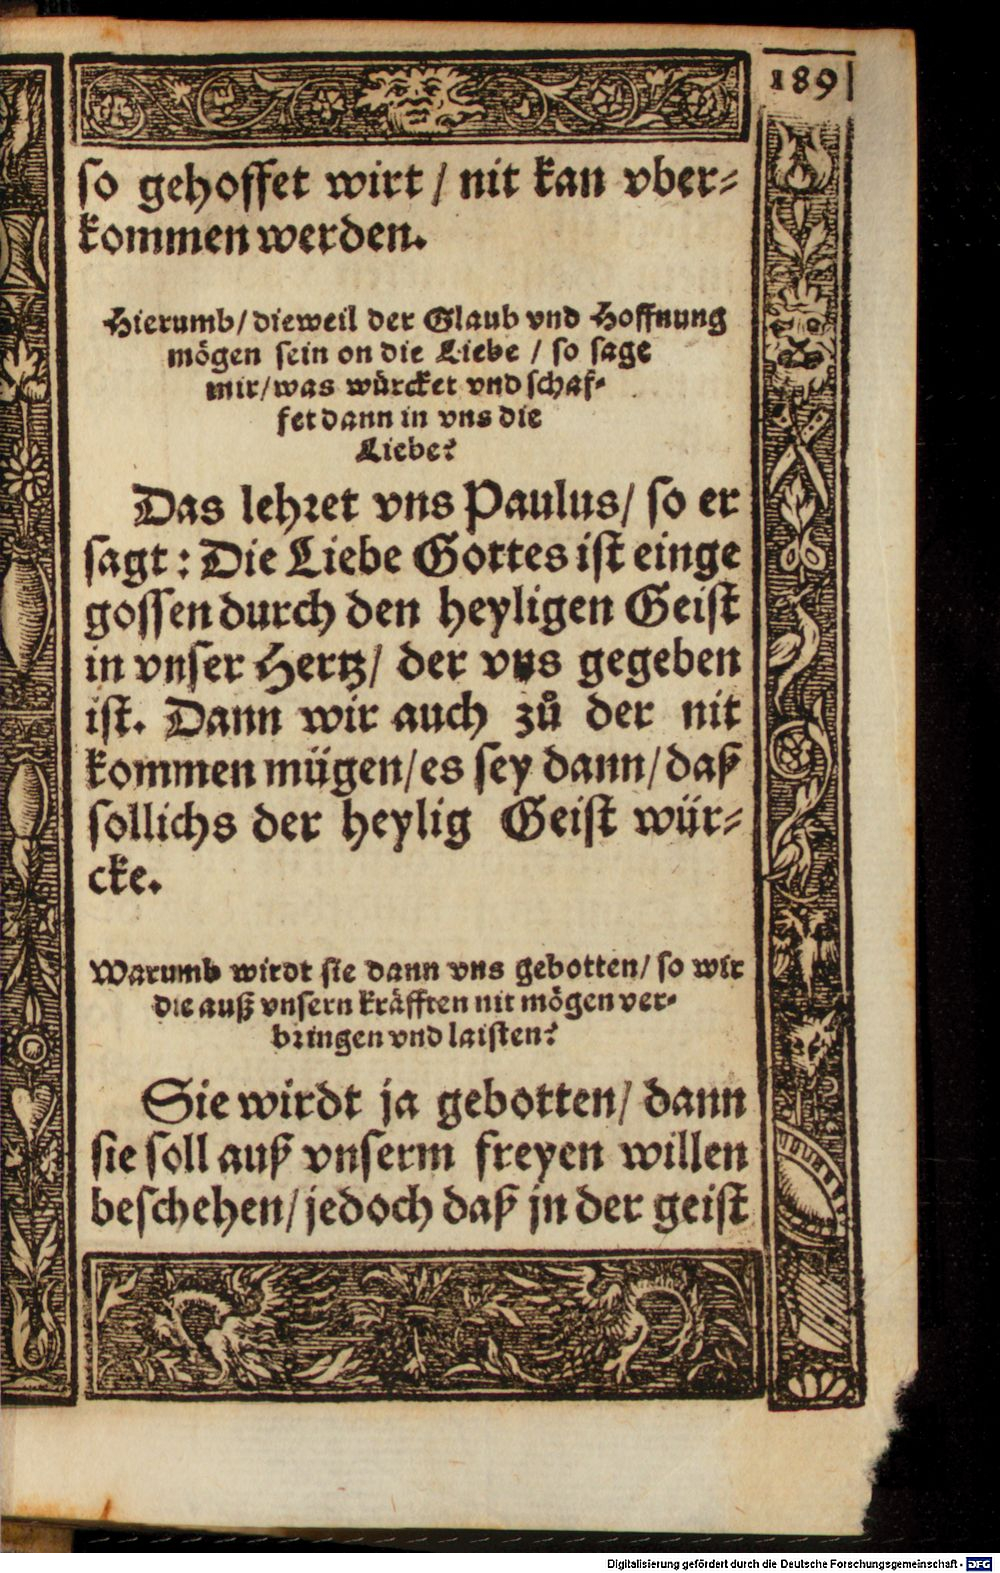 189
so gehoffet wirt / nit kan vber⸗
kommen werden.
Hierumb / dieweil der Glaub vnd Hoffnung
mögen sein on die Liebe / so sage
mir / was würcket vnd schaf⸗
fet dann in vns die
Liebe?
Das lehret vns Paulus / so er
sagt : Die Liebe Gottes ist einge
gossen durch den heyligen Geist
in vnser Hertz / der vns gegeben
ist. Dann wir auch zů der nit
kommen mügen / es sey dann / daß
sollichs der heylig Geist wür⸗
cke.
Warumb wirdt sie dann vns gebotten / so wir
die auß vnsern kräfften nit mögen ver⸗
bringen vnd laisten?
Sie wirdt ja gebotten / dann
sie soll auß vnserm freyen willen
beschehen / jedoch daß jn der geist
Digitalisierung gefördert durch die Deutsche Forschungsgemeinschaft - DFG